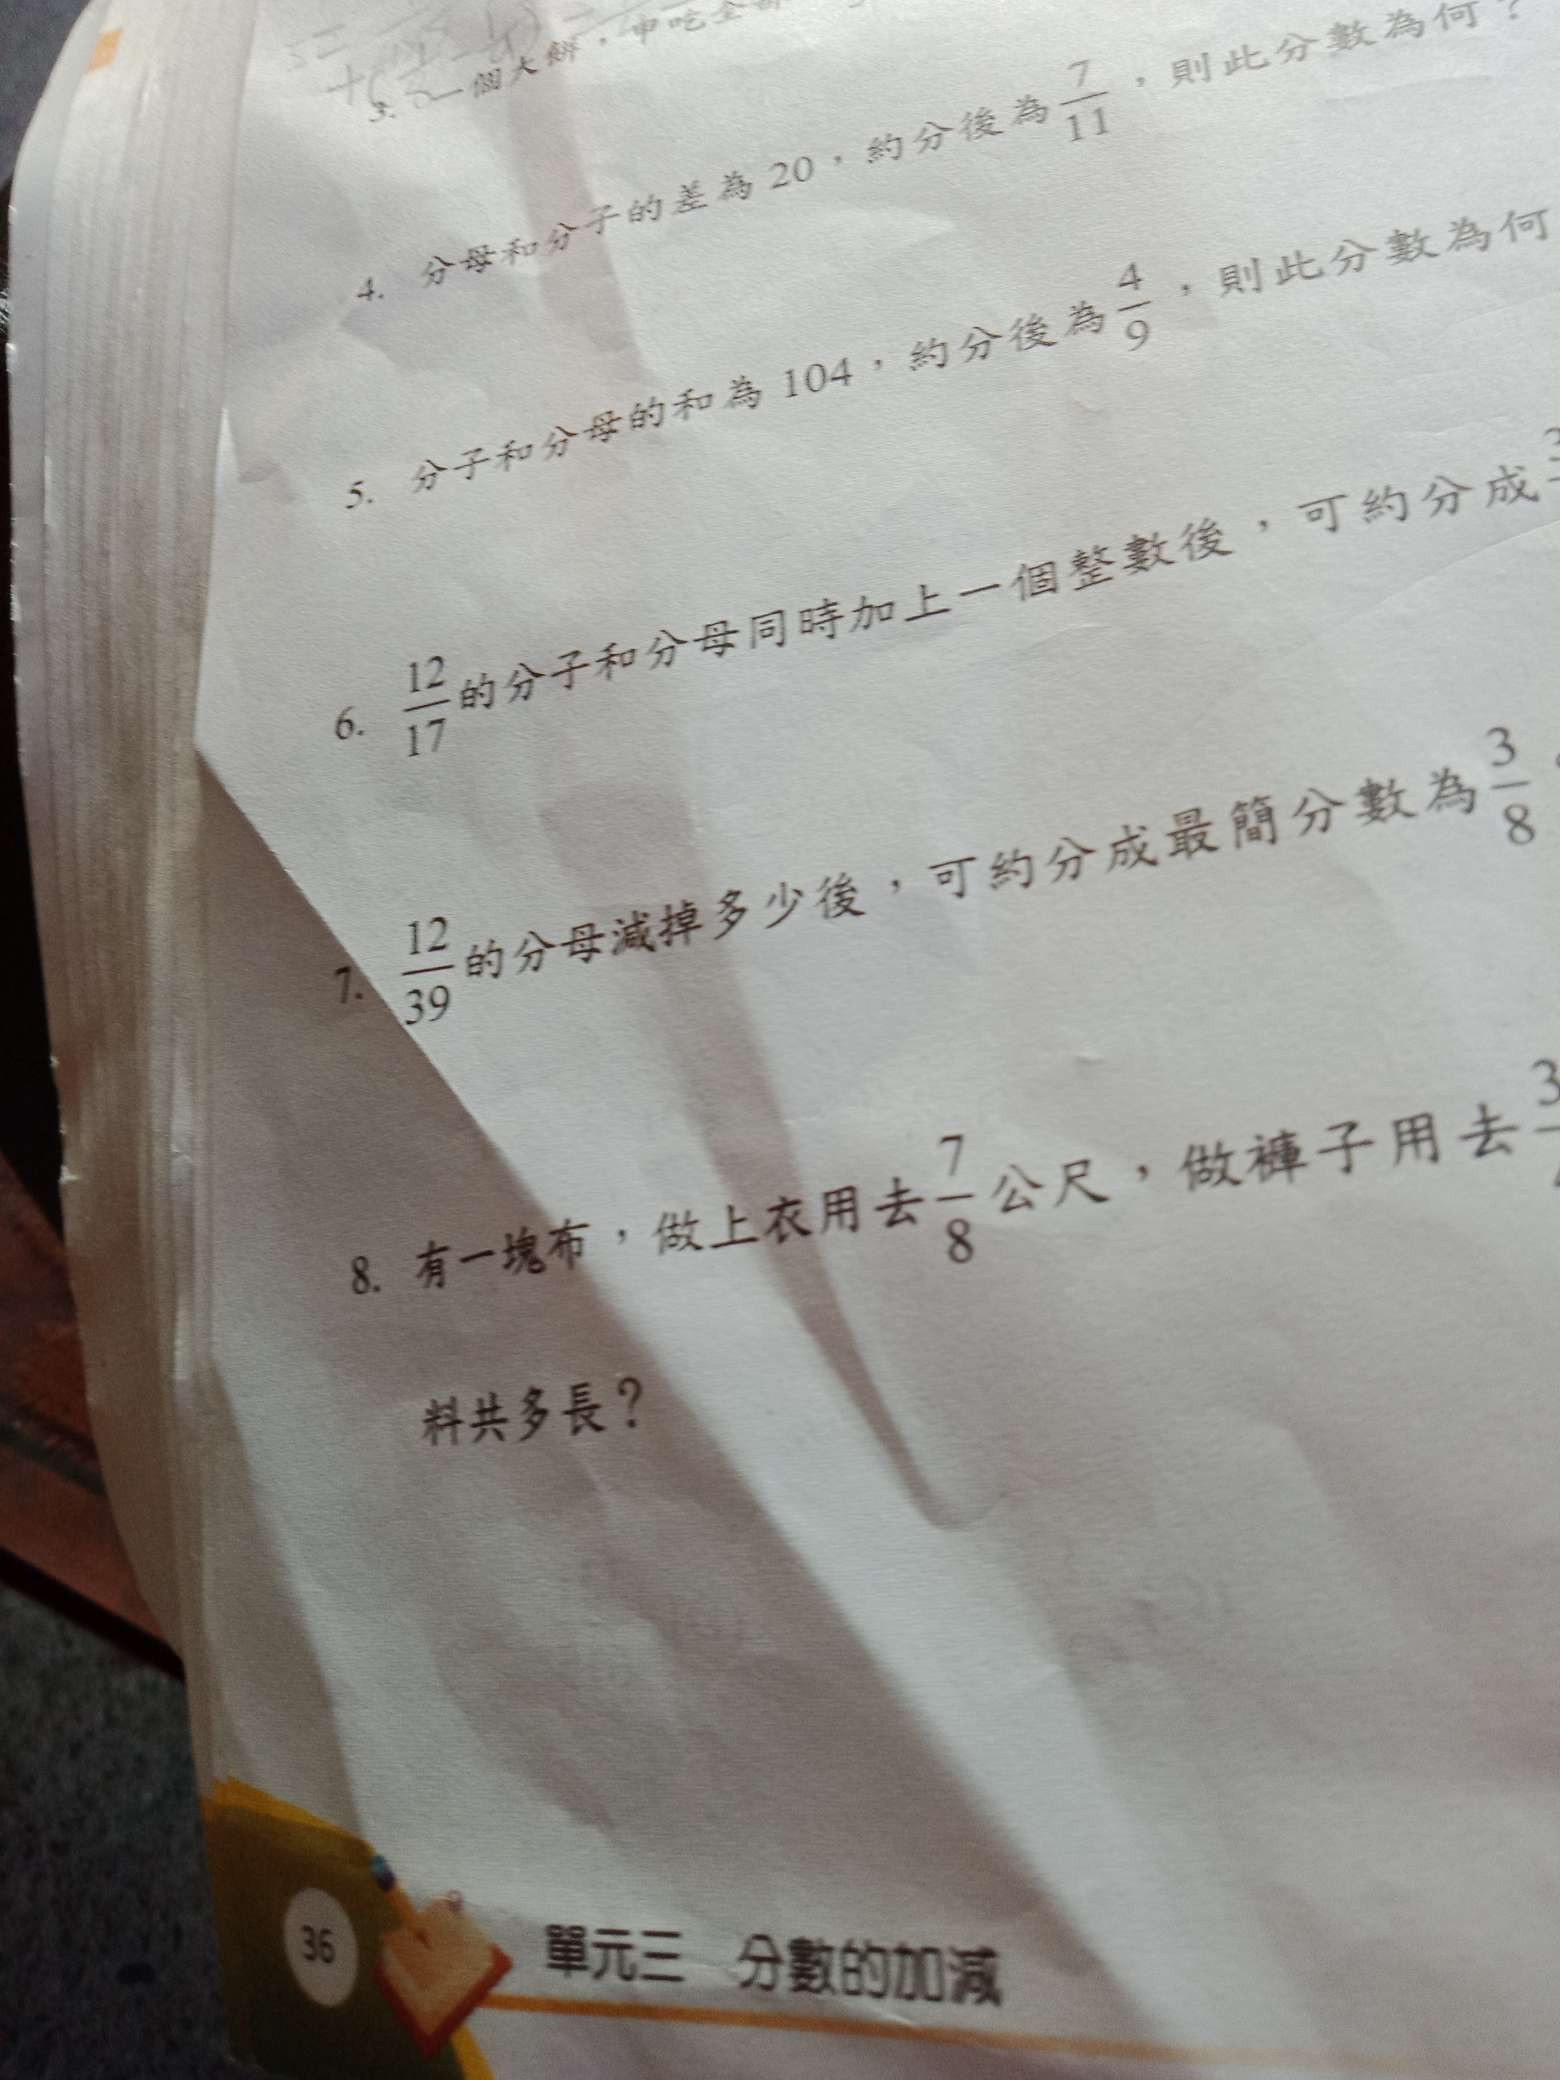 3. 一個大餅，甲吃全
4. 分母和分子的差為 20，約分後為 7/11，則此分數為何？
5. 分子和分母的和為 104，約分後為 4/9，則此分數為何
6. 12/17 的分子和分母同時加上一個整數後，可約分成 3
7. 12/39 的分母減掉多少後，可約分成最簡分數為 3/8
8. 有一塊布，做上衣用去 7/8 公尺，做褲子用去 3
料共多長？
36 單元三 分數的加減